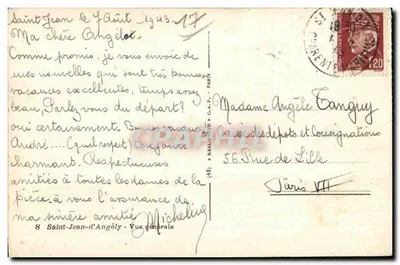 Saint Jean le 7 Août 1943.
17
Ma chère Angèle.
Comme promis, je vous envoie de
mes nouvelles qui sont très bonnes
vacances excellentes, temps assez
beau, Parlez vous du départ?
oui certainement. Bonnes vacances
André.... (quel respect) toujours
charmant. Respectueuses
amitiés à toutes les dames de la
pièce à vous l'assurance de
ma sincère amitié Micheline
8 Saint-Jean-d'Angély - Vue générale
1.20
Madame Angèle Tanguy
Caisse des dépots et Consignations
56 Rue de Lille
Paris VII